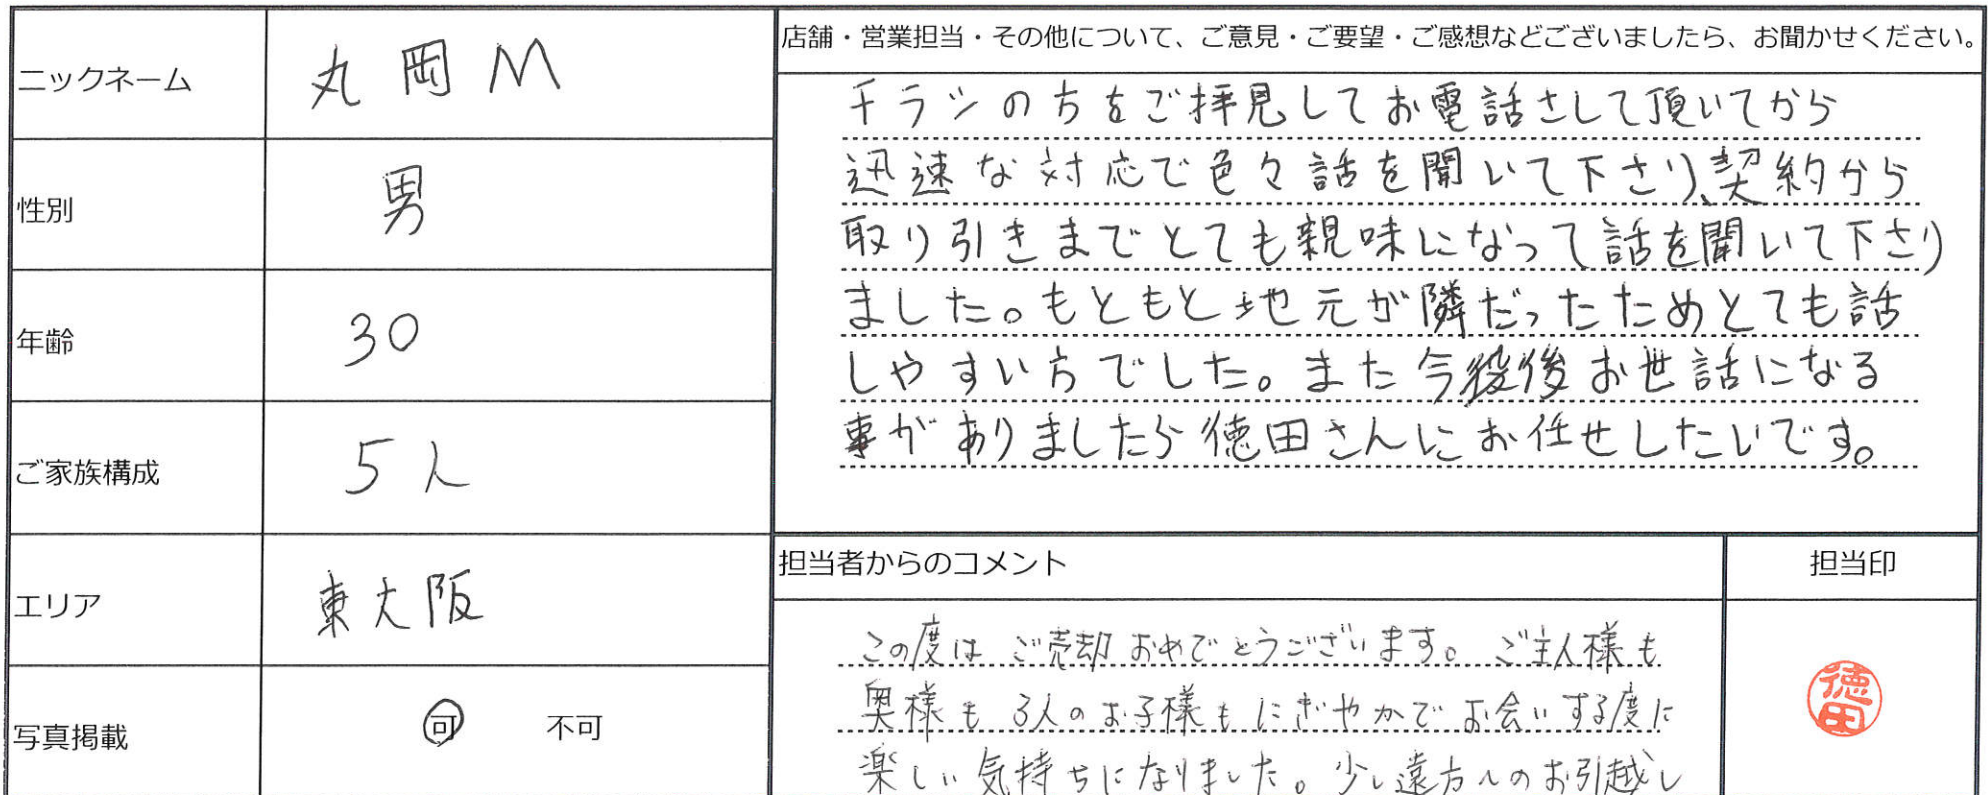 ニックネーム
丸岡M
性別
男
年齢
30
ご家族構成
5人
エリア
東大阪
写真掲載
可 不可
店舗・営業担当・その他について、ご意見・ご要望・ご感想などございましたら、お聞かせください。
チラシの方をご拝見してお電話さして頂いてから
迅速な対応で色々話を聞いて下さり、契約から
取り引きまでとても親味になって話を聞いて下さり
ました。もともと地元が隣だったためとても話
しやすい方でした。また今後お世話になる
事がありましたら徳田さんにお任せしたいです。
担当者からのコメント
この度はご売却おめでとうございます。ご主人様も
奥様も3人のお子様もにぎやかでお会いする度に
楽しい気持ちになりました。少し遠方へのお引越し
担当印
徳田